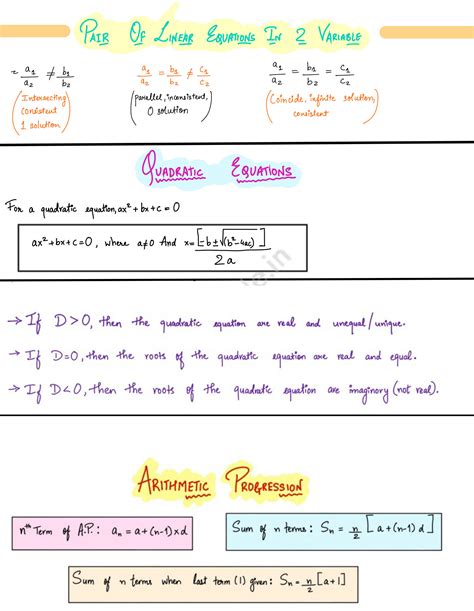 Pair Of Linear Equations In 2 Variable
= a1/a2 ≠ b1/b2
(Intersecting
consistent
1 solution)
a1/a2 = b1/b2 ≠ c1/c2
(parallel, inconsistent,
0 solution)
a1/a2 = b1/b2 = c1/c2
(Coincide, infinite solution,
consistent)
Quadratic Equations
For a quadratic equation, ax² + bx + c = 0
ax² + bx + c = 0, where a≠0 And x = [-b±√(b²-4ac)]/2a
→ If D>0, then the quadratic equation are real and unequal/unique.
→ If D=0, then the roots of the quadratic equation are real and equal.
→ If D<0, then the roots of the quadratic equation are imaginory (not real).
Arithmetic Progression
nth Term of A.P.: an = a + (n-1) × d
Sum of n terms: Sn = n/2 [a + (n-1) d]
Sum of n terms when last term (l) given: Sn = n/2 [a + l]